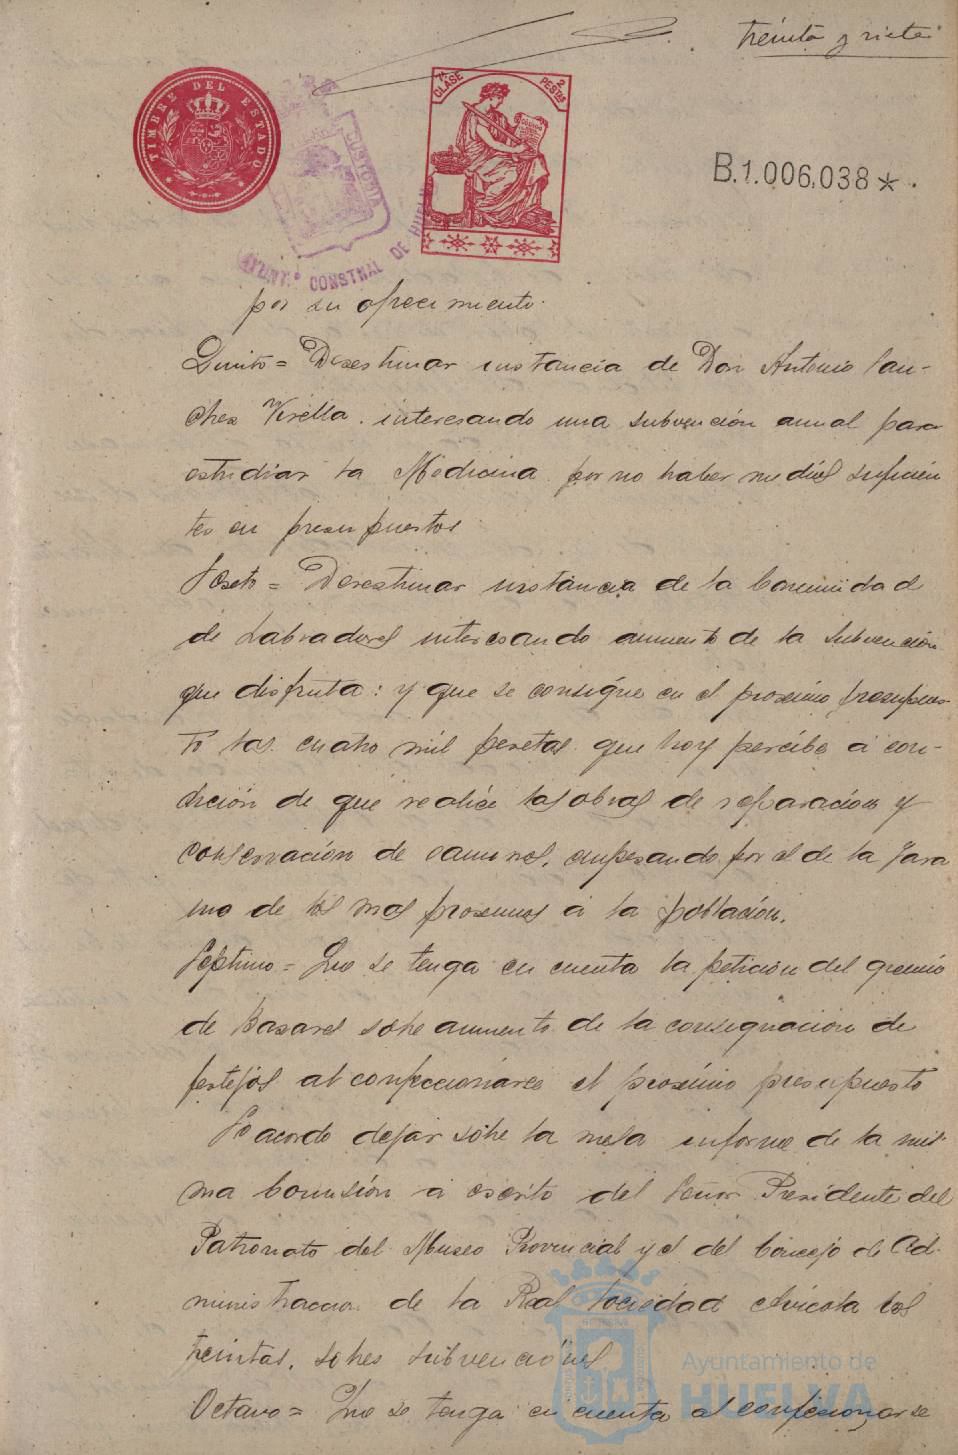 treinta y siete
TIMBRE DEL ESTADO
7ª CLASE
2 PESTAS
CUSTODIA
AYUNT.º CONSTNAL DE HUELVA
B.1.006.038*
por su ofrecimiento.
Quinto = Desestimar instancia de Don Antonio San-
chez Virella. interesando una subvención anual para
estudiar la Medicina por no haber medios suficien
tes en presupuestos
Sexto = Desestimar instancia de la Comunidad
de Labradores interesando aumento de la subvención
que disfruta: y que se consigne en el proximo presupues-
to las cuatro mil pesetas que hoy percibe á con-
dición de que realice las obras de reparación y
conservación de caminos, empezando por el de la Jara
mo de los mas proximos á la población.
Septimo = Que se tenga en cuenta la petición del gremio
de Bazares sobre aumento de la consignación de
festejos al confeccionarse el proximo presupuesto
Se acordo dejar sobre la mesa informe de la mis-
ma Comisión á escrito del Señor Presidente del
Patronato del Museo Provincial y el del Concejo de Ad-
ministracion de la Real Sociedad Avicola los
treintas, sobres subvenciones
Octavo = Que se tenga en cuenta al confeccionarse
Ayuntamiento de
HUELVA